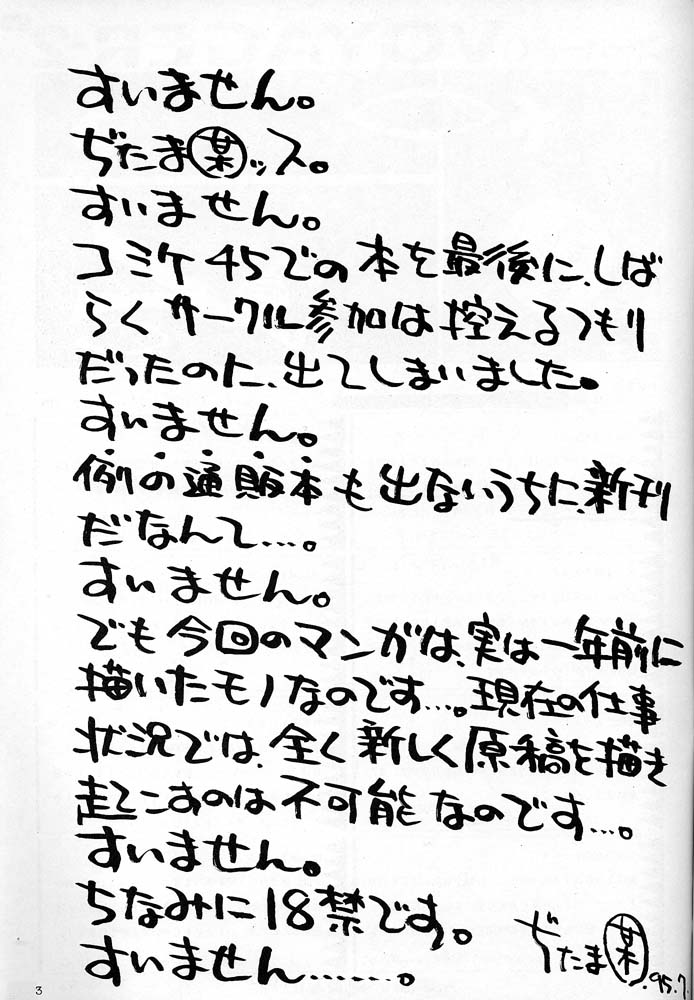 すいません。
ぢたま㋲ッス。
すいません。
コミケ45での本を最後に、しば
らくサークル参加は控えるつもり
だったのに、出てしまいました。
すいません。
例の通販本も出ないうちに、新刊
だなんて…。
すいません。
でも今回のマンガは、実は一年前に
描いたモノなのです…。現在の仕事
状況では、全く新しく原稿を描き
起こすのは不可能なのです…。
すいません。
ちなみに18禁です。
すいません……。
ぢたま某
.95.7.
3